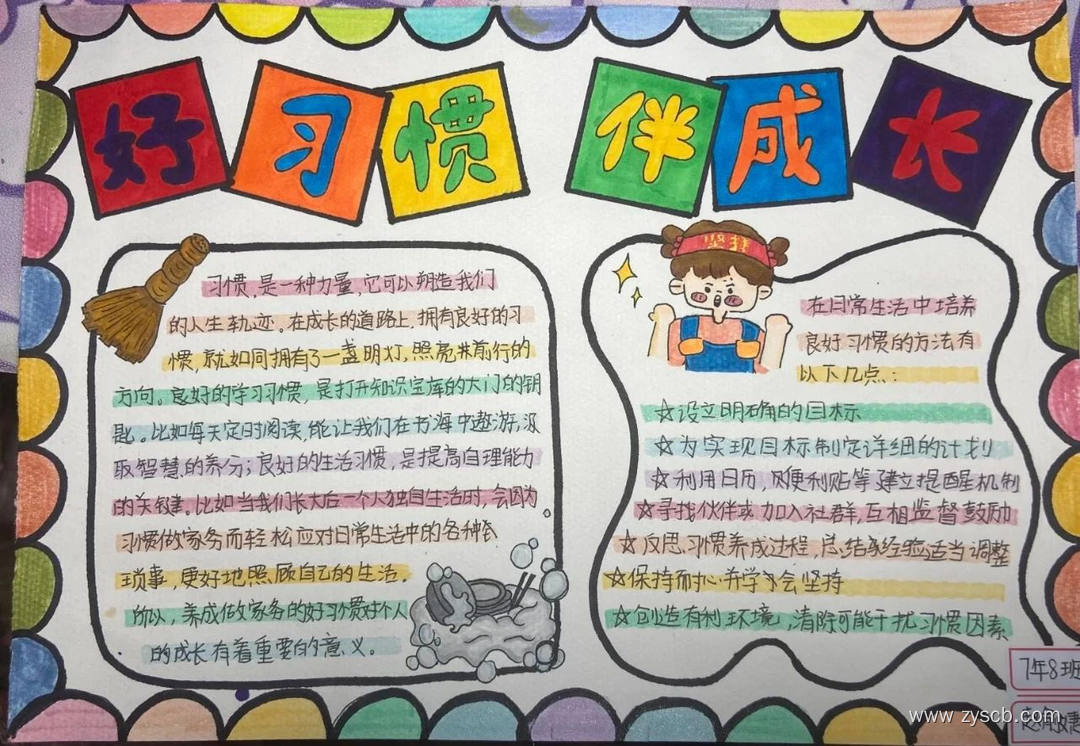 好习惯 伴成长
习惯,是一种力量,它可以塑造我们
的人生轨迹。在成长的道路上,拥有良好的习
惯,就如同拥有了一盏明灯,照亮并前行的
方向。良好的学习习惯,是打开知识宝库的大门的钥
匙。比如每天定时阅读,能让我们在书海中遨游,汲
取智慧的养分;良好的生活习惯,是提高自理能力
的关键。比如当我们长大后一个人独自生活时,会因为
习惯做家务而轻松应对日常生活中的各种
琐事,更好地照顾自己的生活。
所以,养成做家务的好习惯对个人
的成长有着重要的意义。
坚持
在日常生活中培养
良好习惯的方法有
以下几点:
☆设立明确的目标
☆为实现目标制定详细的计划
☆利用日历,便利贴等建立提醒机制
☆寻找伙伴或加入社群,互相监督鼓励
☆反思习惯养成过程,总结经验适当调整
☆保持耐心并学会坚持
☆创造有利环境,清除可能干扰习惯因素
7年8班
www.zyscb.com